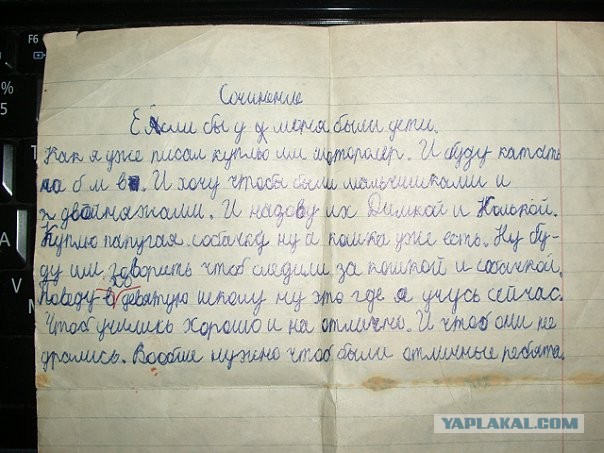 Сочинение
Если бы у у меня были дети.
Как я уже писал куплю им моторолер. И буду катать
на бмв. И хочу чтобы были мальчишками и
двойняжами. И назову их Димкой и Колькой.
Куплю папугая собачку ну а кошка уже есть. Ну бу-
ду им говорить чтоб следили за кошкой и собачкой.
Поведу в девятую школу ну это где я учусь сейчас.
Чтоб учились хорошо и на отлично. И чтоб они не
дрались. Вообще нужно чтоб были отличные ребята.
YAPLAKAL.COM
F6
%
5
A
V